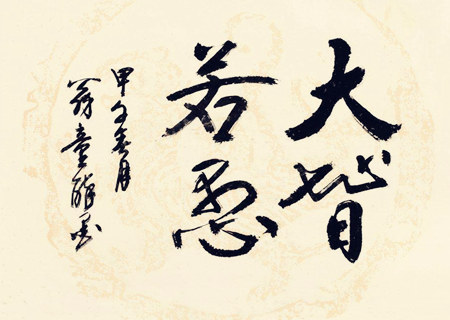 大智
若愚
甲午春月
童